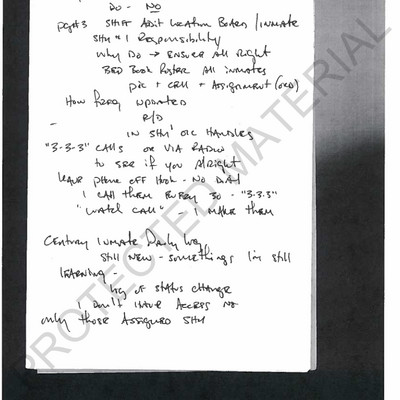 DO - NO
pg#3 SHIFT Audit Location Board / INMATE
SHU #1 Responsibility
Why Do → ENSURE All Right
BED Book Roster All inmates
pic + Cell + Assignment
How freq updated
-
IN SHU OIC HANDLES
"3-3-3" CALLS or VIA RADIO
to SEE if you Alright
leave phone off Hook - NO DIAL
I CALL them EVERY 30 - "3-3-3"
"Watch CALL" - I MAKE them
CENTURY INMATE Daily Log,
Still NEW - somethings I'm still
LEARNING -
log of STATUS CHANGE
I Don't HAVE ACCESS
only those ASSIGNED SHU
PROTECTED MATERIAL